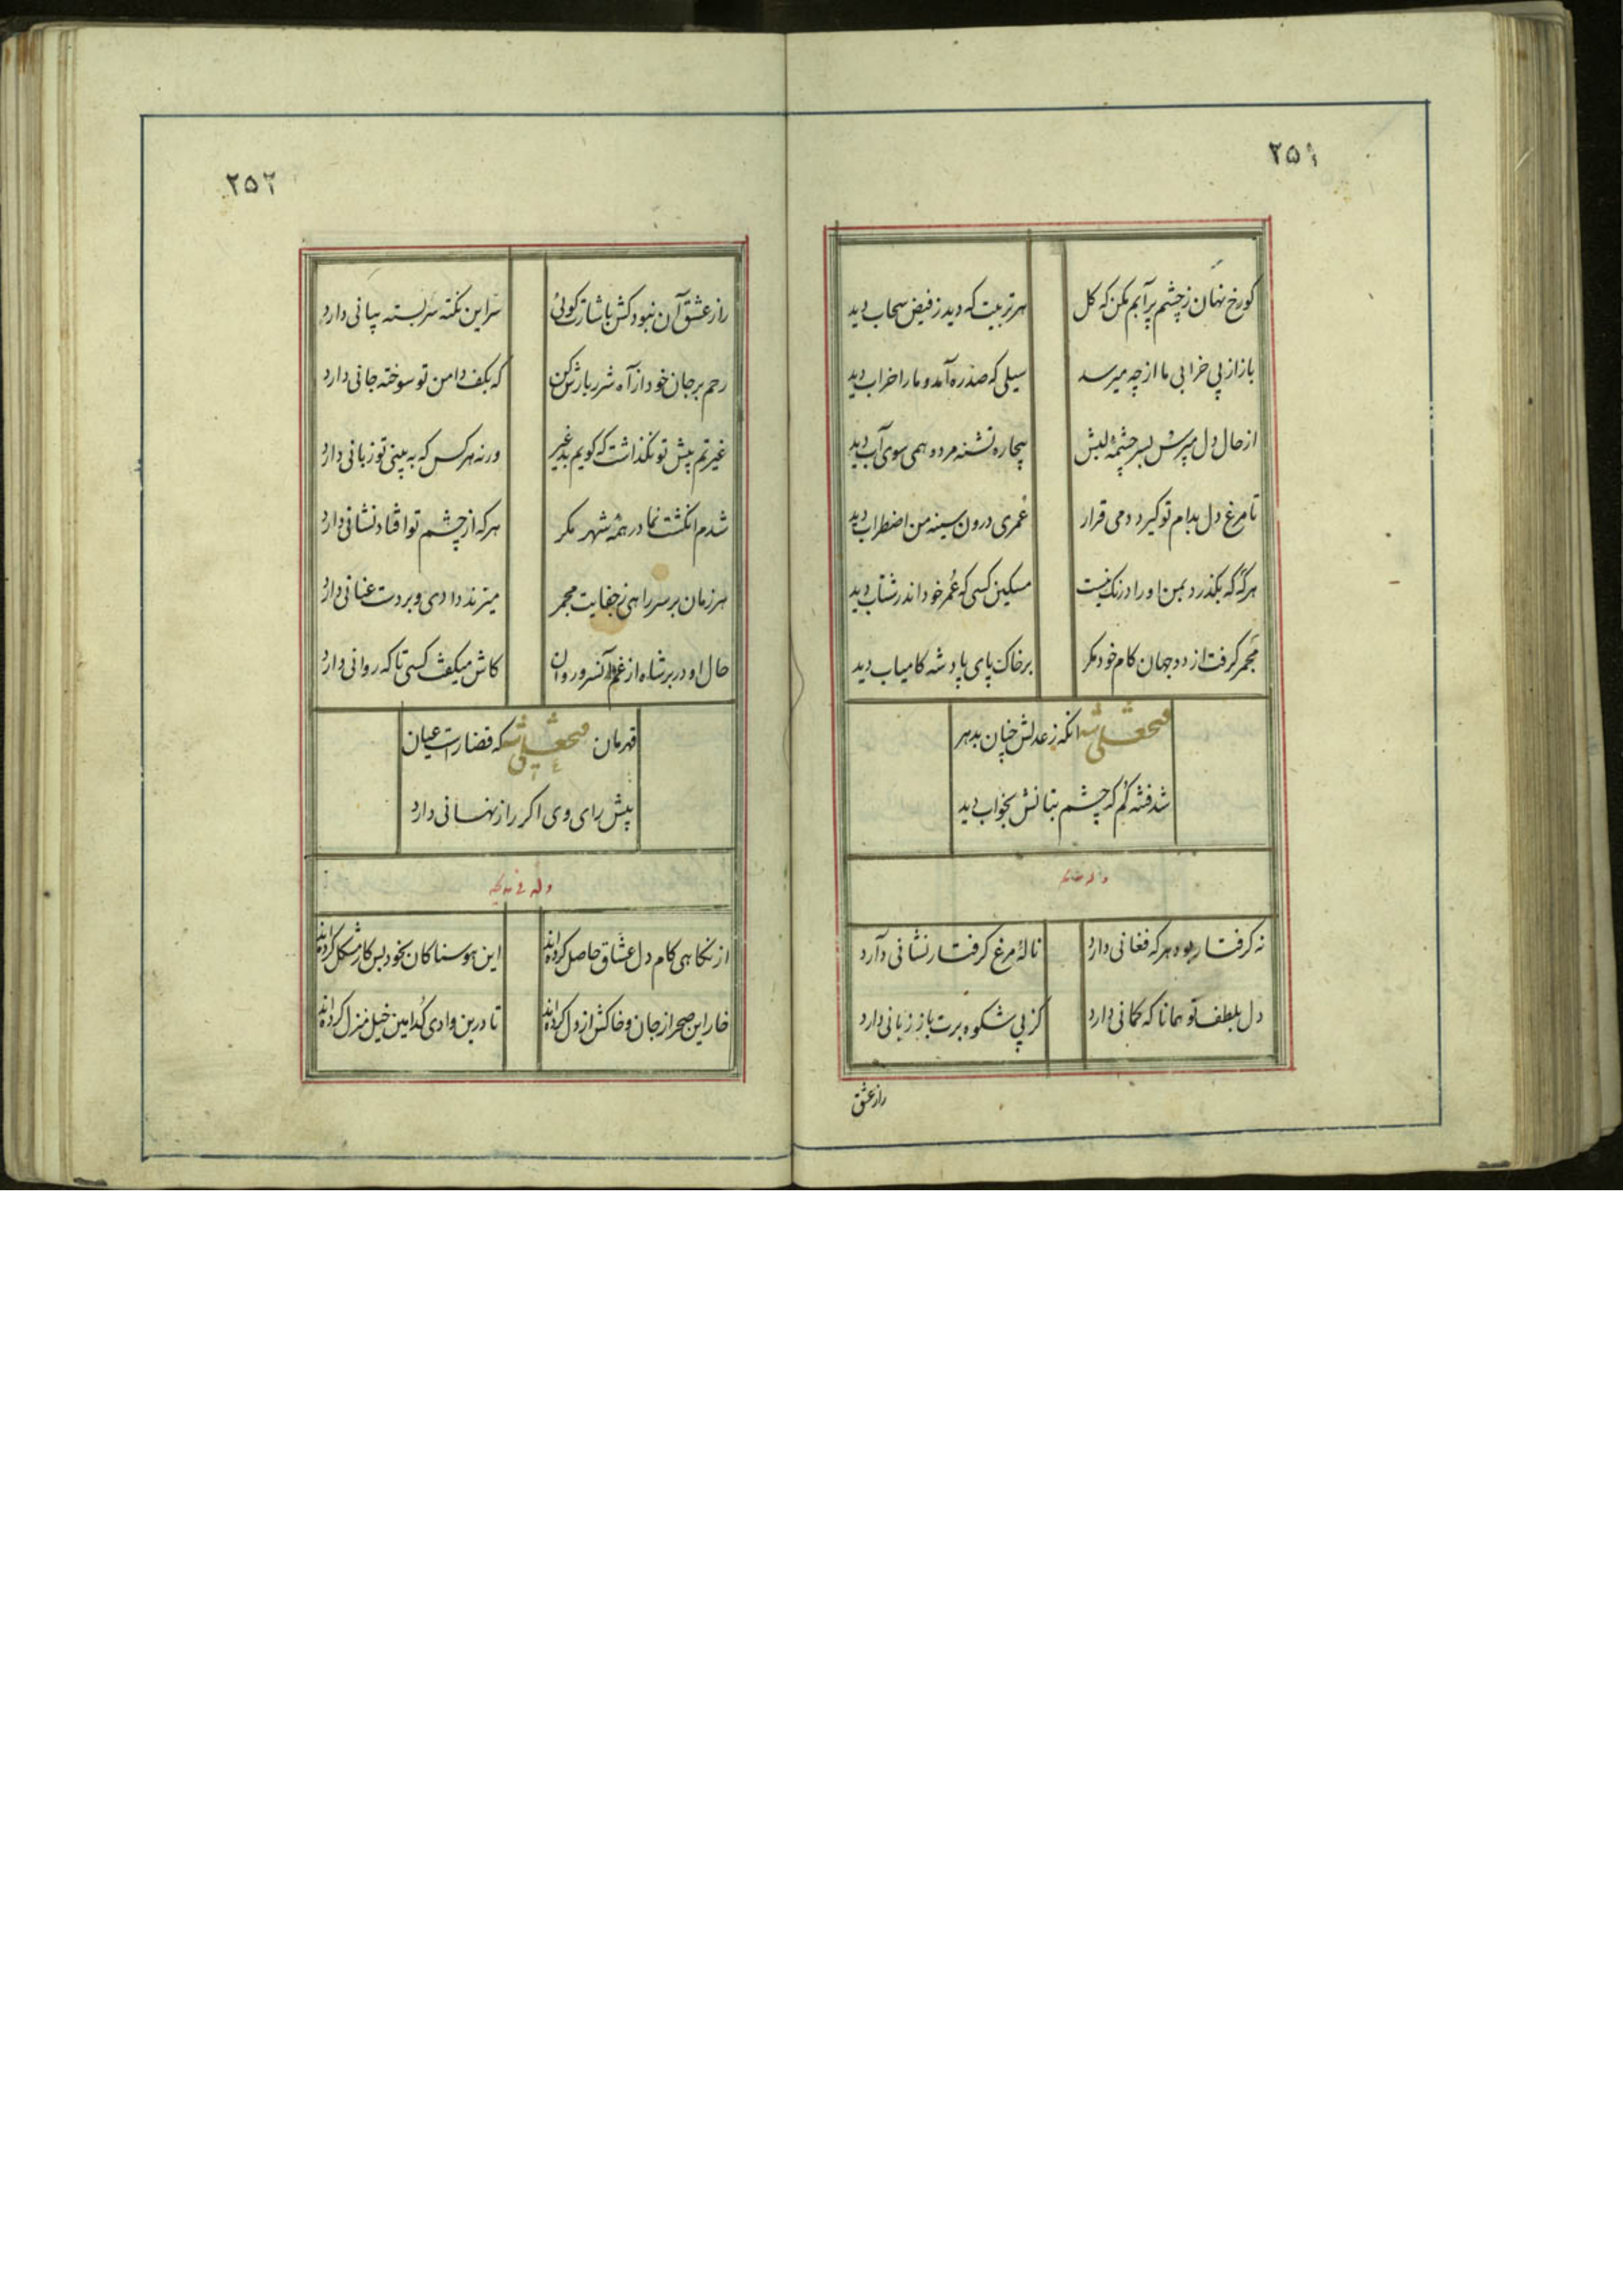 ۲۵۱
کورخ نهان ز چشم پر آبم مکن که کل
هر تربیت که دید ز فیض سحاب دید
باز از پی خرابی ما از چه میرسد
سیلی که صد ره آمد و ما را خراب دید
از حال دل مپرس بسر چشمهٔ لبش
بیچاره تشنه مرد و همی سوی آب دید
تا مرغ دل بدام تو گیرد دمی قرار
عمری درون سینه من اضطراب دید
هرگه که بکذرد بمن او را درنک نیست
مسکین کسی که عمر خود اندر شتاب دید
مجمر کرفت از دو جهان کام خود مکر
بر خاک پای پادشه کامیاب دید
فتحعلی شه انکه ز عدلش چنان بدهر
شد فتنه کم که چشم بتانش بخواب دید
نه کرفتار بود هر که فغانی دارد
نالهٔ مرغ کرفتار نشانی دارد
دل بلطف تو همانا که کمانی دارد
کز پی شکوه برت باز زبانی دارد
راز عشق
۲۵۲
راز عشق آن نبود کش باشارت کوئی
سر این نکته سر بسته بیانی دارد
رحم بر جان خود از آه شرر بارش کن
که بکف دامن تو سوخته جانی دارد
غیرتم پیش تو نکذاشت که کویم بد غیر
ورنه هر کس که به بینی تو زبانی دارد
شدم انکشت نما در همه شهر مکر
هر که از چشم تو افتاد نشانی دارد
هر زمان بر سر راهی ز جفایت مجمر
میزند دادی و بر دست عنانی دارد
حال او در بر شاه از غم آن سرو روان
کاش میکفت کسی تا که روانی دارد
قهرمان فتحعلی شه که قضا راست عیان
پیش رای وی اکر راز نهانی دارد
وله فی مدیحه
از نکاهی کام دل عشاق حاصل کرده‌اند
این هوسناکان بخود بس کار مشکل کرده‌اند
خار این صحرا ز جان و خاکش از دل کرده‌اند
تا درین وادی کدامین خیل منزل کرده‌اند